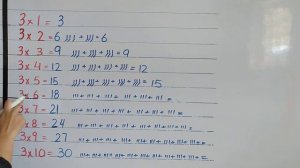 3 x 1 = 3
3 x 2 = 6 /// + /// = 6
3 x 3 = 9 /// + /// + /// = 9
3 x 4 = 12 /// + /// + /// + /// = 12
3 x 5 = 15 /// + /// + /// + /// + /// = 15
3 x 6 = 18 /// + /// + /// + /// + /// + /// =
3 x 7 = 21 /// + /// + /// + /// + /// + /// + /// =
x 8 = 24 /// + /// + /// + /// + /// + /// + /// + /// =
3 x 9 = 27 /// + /// + /// + /// + /// + /// + /// + /// + /// =
3 x 10 = 30 /// + /// + /// + /// + /// + /// + /// + /// + /// + /// =